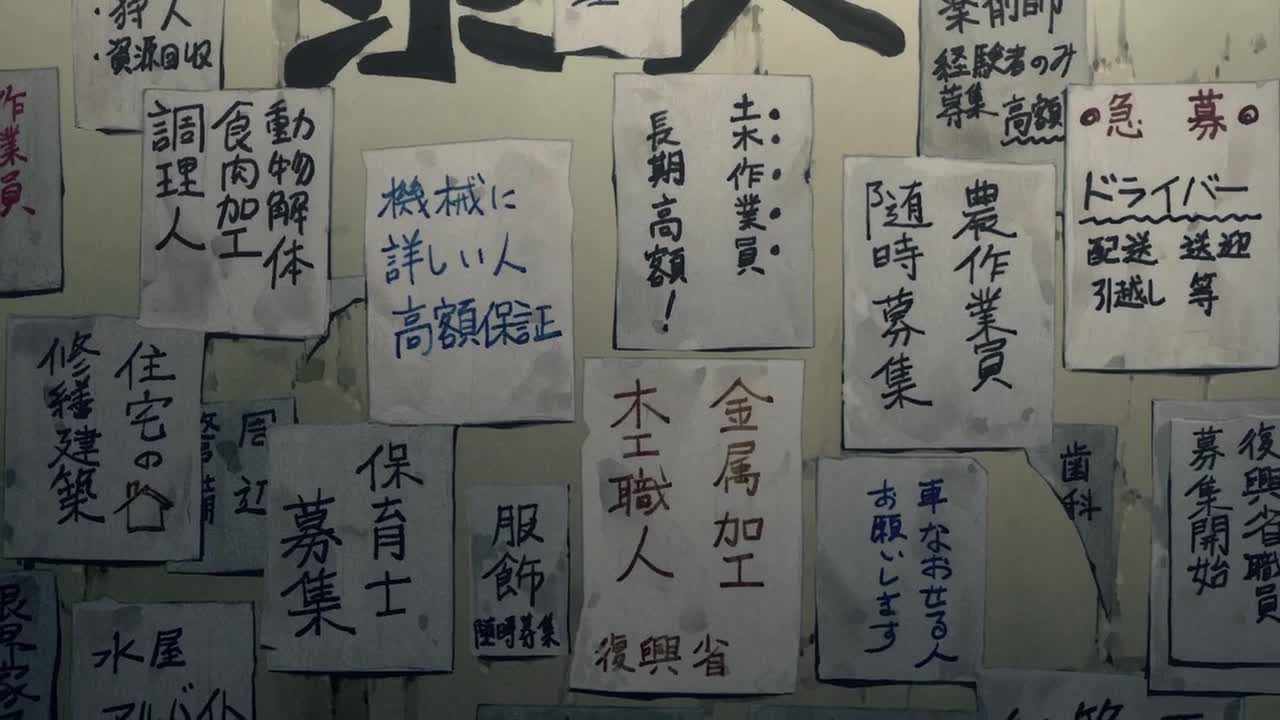 求人
・狩人
・資源回収
薬剤師
経験者のみ
募集
高額
作業員
動物解体
食肉加工
調理人
機械に
詳しい人
高額保証
土木作業員
長期高額!
農作業員
随時募集
急募
ドライバー
配送 送迎
引越し 等
住宅の
修繕建築
周辺
警備
保育士
募集
服飾
随時募集
金属加工
木工職人
復興省
車なおせる人
お願いします
歯科
復興省職員
募集開始
水屋
アルバイト